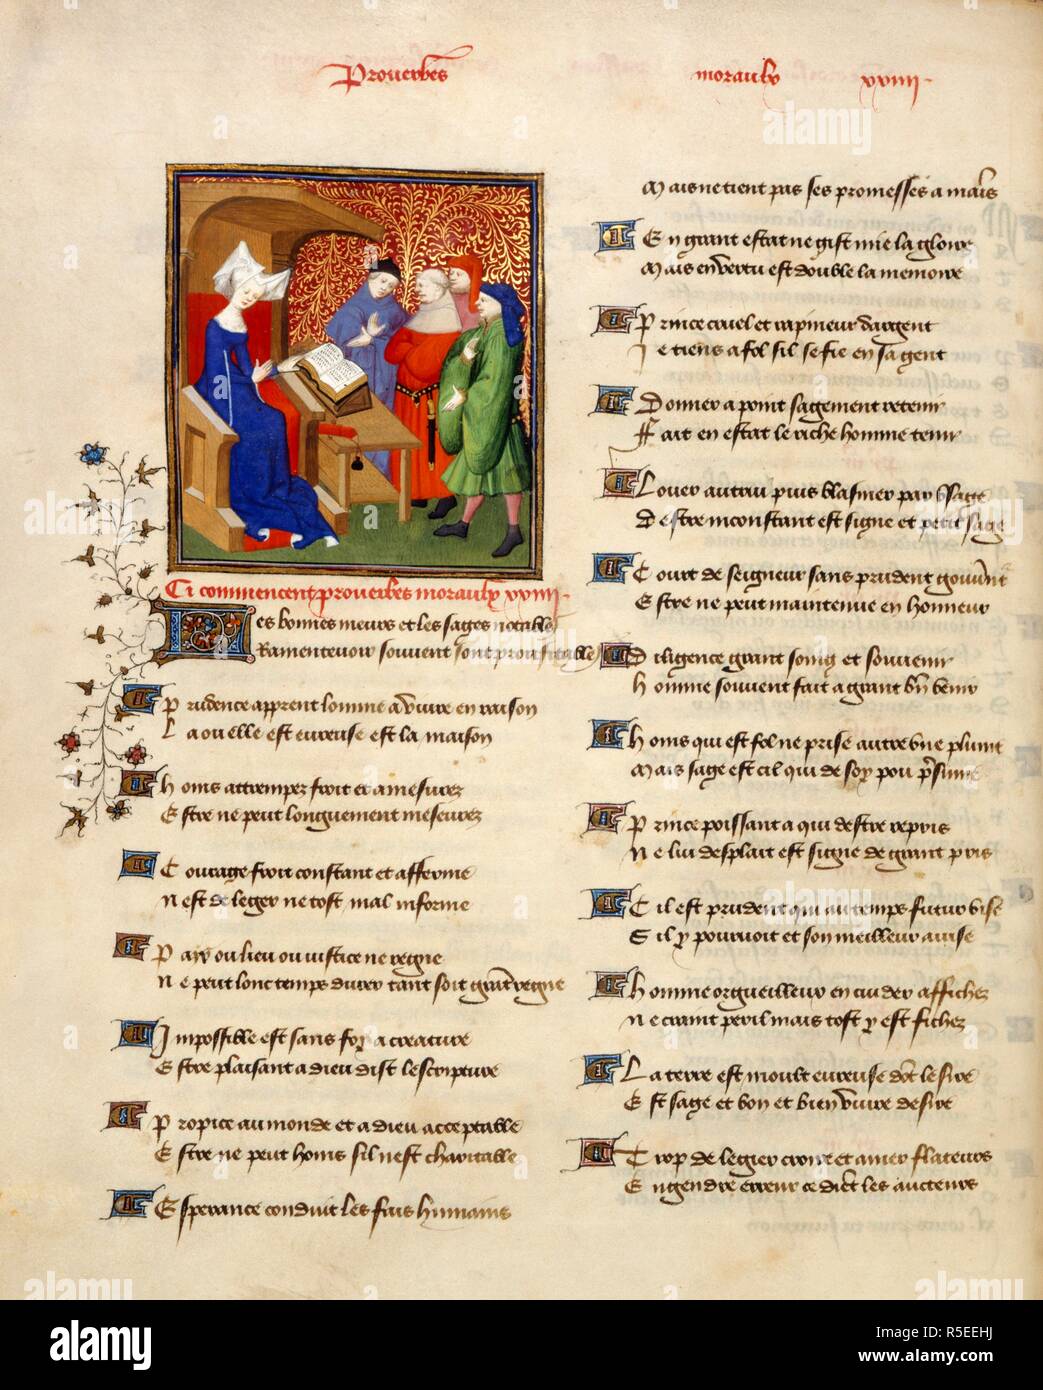 Prouerbes moraulx xxviij
Ci commencent prouerbes moraulx xxviij
Les bonnes meurs et les sages notables
Ramenteuoir souuent sont prouffitables
Prudence apprent lomme a viure en raison
La ou elle est eureuse est la maison
Homs attrempez froit et amesurez
Estre ne peut longuement meseurez
Courage froit constant et afferme
Nest de legier ne tost mal informe
Pays ou lieu ou iustice ne regne
Ne peut lonc temps durer tant soit grant regne
Impossible est sans foy a creature
Estre plaisant a dieu dist lescripture
Propice au monde et a dieu acceptable
Estre ne peut homs sil nest charitable
Esperance conduit les fais humains
Mais ne tient pas ses promesses a mains
En grant estat ne gist mie la gloire
Mais en vertu est double la memoire
Prince cruel et rapineur dargent
Je tiens a fol sil se fie en sa gent
Donner a point sagement retenir
Fait en estat le riche homme tenir
Louer autrui puis blasmer par vsage
Destre inconstant est signe et petit sage
Court de seigneur sans prudent gouuerneur
Estre ne peut maintenue en honneur
Diligence grant soing et souuenir
Homme souuent fait a grant bien venir
Homs qui est fol ne prise autre vne plume
Mais sage est cil qui de soy pou presume
Prince poissant a qui destre repris
Ne lui desplait est signe de grant pris
Cil est prudent qui au temps futur vise
Sil y pouruoit et son meilleur auise
Homme orgueilleux en cuider affichez
Ne craint peril mais tost y est fichez
La terre est moult eureuse dont le sire
Est sage et bon et bien viure desire
Trop de legier croire et amer flateurs
Engendre erreur ce dient les aucteurs
alamy
Image ID: R5EEHJ
www.alamy.com